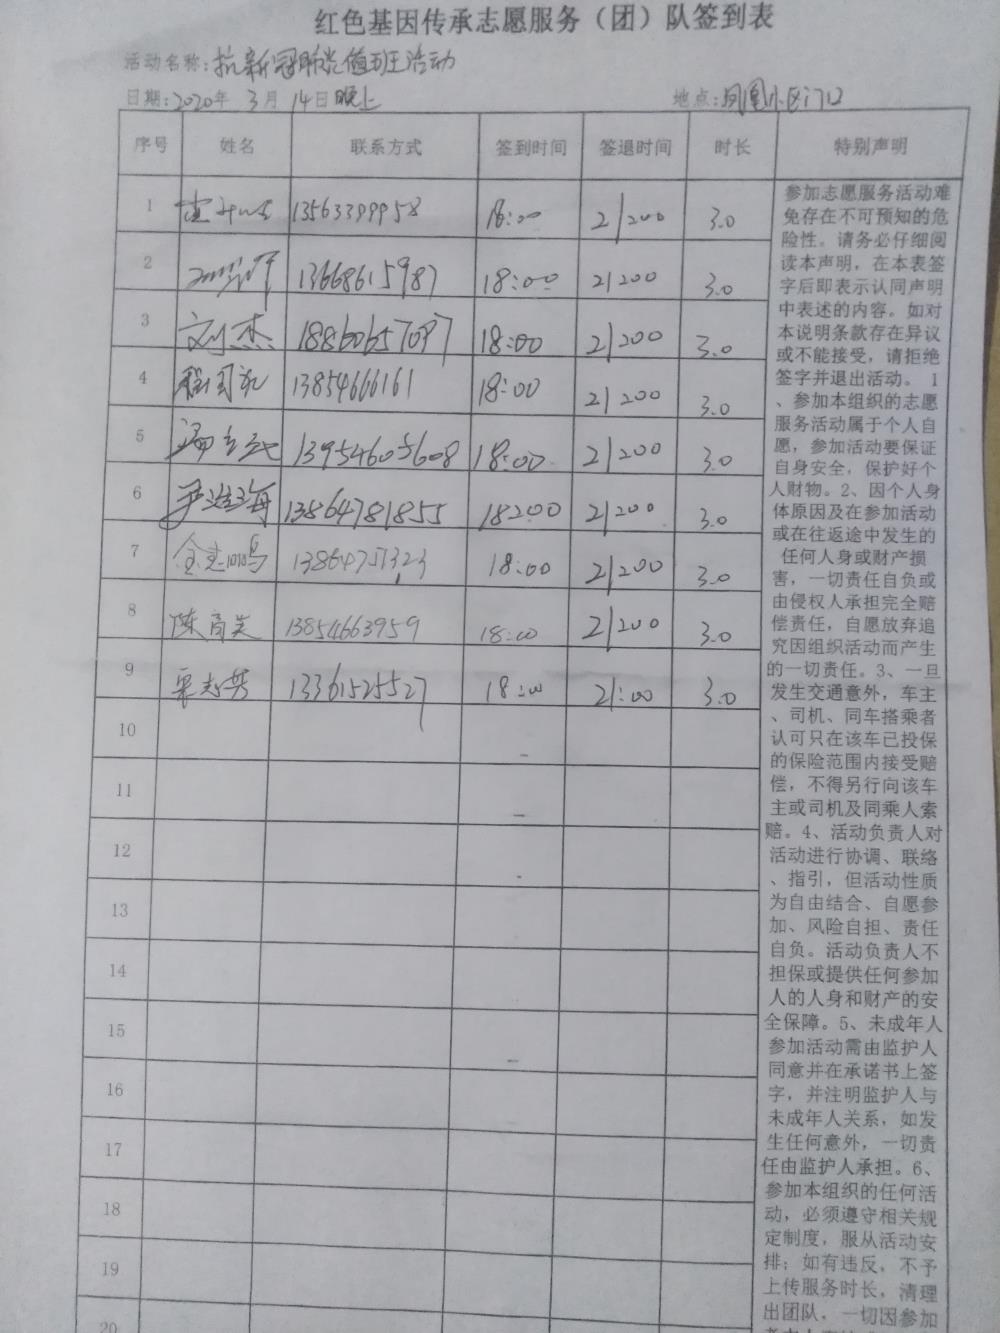 红色基因传承志愿服务（团）队签到表
活动名称:抗新冠肺炎值班活动
日期:2020年 3月 14日晚上 地点:凤凰小区门口
序号 姓名 联系方式 签到时间 签退时间 时长 特别声明
1 13563399958 18:00 21:00 3.0
2 13668615987 18:00 21:00 3.0
3 刘杰 18860657097 18:00 21:00 3.0
4 13854666161 18:00 21:00 3.0
5 13954605608 18:00 21:00 3.0
6 13864781855 18:00 21:00 3.0
7 13864751323 18:00 21:00 3.0
8 陈育美 13854663959 18:00 21:00 3.0
9 13361525527 18:00 21:00 3.0
10
11
12
13
14
15
16
17
18
19
20
参加志愿服务活动难
免存在不可预知的危
险性。请务必仔细阅
读本声明，在本表签
字后即表示认同声明
中表述的内容。如对
本说明条款存在异议
或不能接受，请拒绝
签字并退出活动。 1
、参加本组织的志愿
服务活动属于个人自
愿，参加活动要保证
自身安全，保护好个
人财物。2、因个人身
体原因及在参加活动
或在往返途中发生的
任何人身或财产损
害，一切责任自负或
由侵权人承担完全赔
偿责任，自愿放弃追
究因组织活动而产生
的一切责任。3、一旦
发生交通意外，车主
、司机、同车搭乘者
认可只在该车已投保
的保险范围内接受赔
偿，不得另行向该车
主或司机及同乘人索
赔。4、活动负责人对
活动进行协调、联络
、指引，但活动性质
为自由结合、自愿参
加、风险自担、责任
自负。活动负责人不
担保或提供任何参加
人的人身和财产的安
全保障。5、未成年人
参加活动需由监护人
同意并在承诺书上签
字，并注明监护人与
未成年人关系，如发
生任何意外，一切责
任由监护人承担。6、
参加本组织的任何活
动，必须遵守相关规
定制度，服从活动安
排；如有违反，不予
上传服务时长，清理
出团队，一切因参加